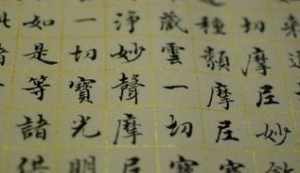 切摩尼妙
種摩尼寶
藏雲一切寶
淨妙聲摩尼
一切寶光明
如是等諸供